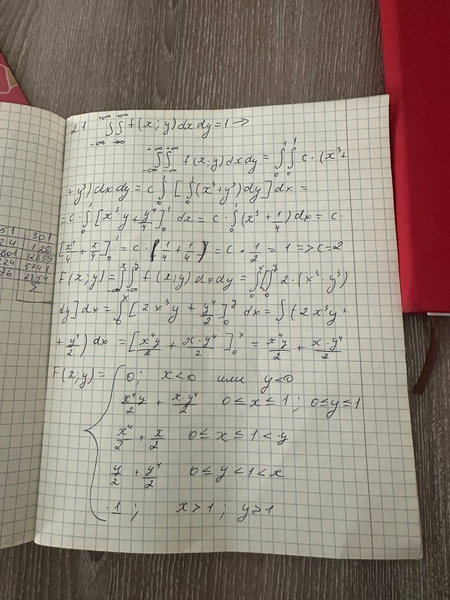 2.1 ∫∫ f(x;y)dxdy=1 →
-∞ -∞
∫∫ f(x;y)dxdy = ∫∫ c·(x³+
+y³)dxdy = c∫[∫(x³+y³)dy]dx =
= c·∫[x³y+y⁴/4]dx = c·∫(x³+1/4)dx = c·
[x⁴/4+x/4] = c·[1/4+1/4] = c·1/2 = 1 => c=2
F(x;y) = ∫∫ f(x;y)dxdy = ∫[∫2·(x³·y³)
dy]dx = ∫[2x³y+y⁴/2]dx = ∫(2x³y+
+y⁴/2)dx = [x⁴y/2+x·y⁴/2] = x⁴y/2+x·y⁴/2
F(x;y) = { 0; x<0 или y<0
x⁴y/2+x·y⁴/2 0≤x≤1; 0≤y≤1
x⁴/2+x/2 0≤x≤1<y
y/2+y⁴/2 0≤y<1<x
1; x>1; y≥1
51 301
24 120
601 12859
224 5748
76 2354
Σ